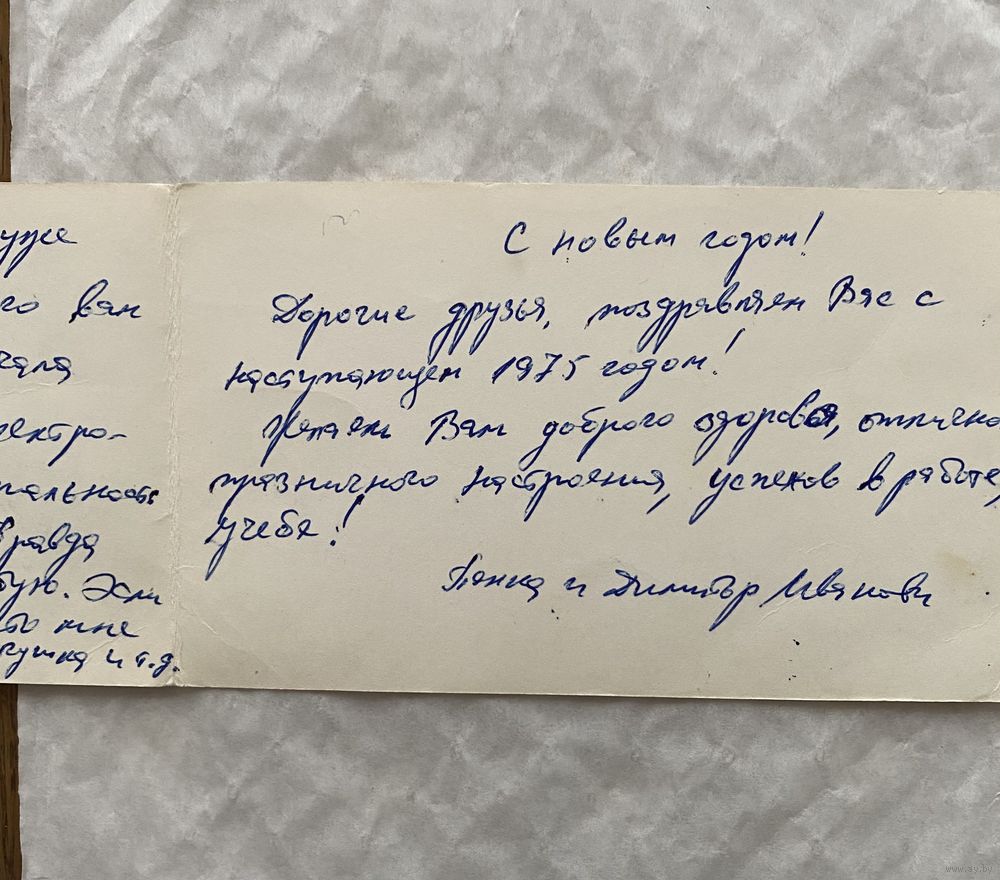 уже
го вам
чала
лектро-
тальность
Правда
тую. Если
то мне
рушка и т.д.
С новым годом!
Дорогие друзья, поздравляем Вас с
наступающем 1975 годом!
Желаем Вам доброго здоровя, отлично
празничного настроения, успехов в работе,
учебе!
Пенка и Димитър Иванови
www.ay.by